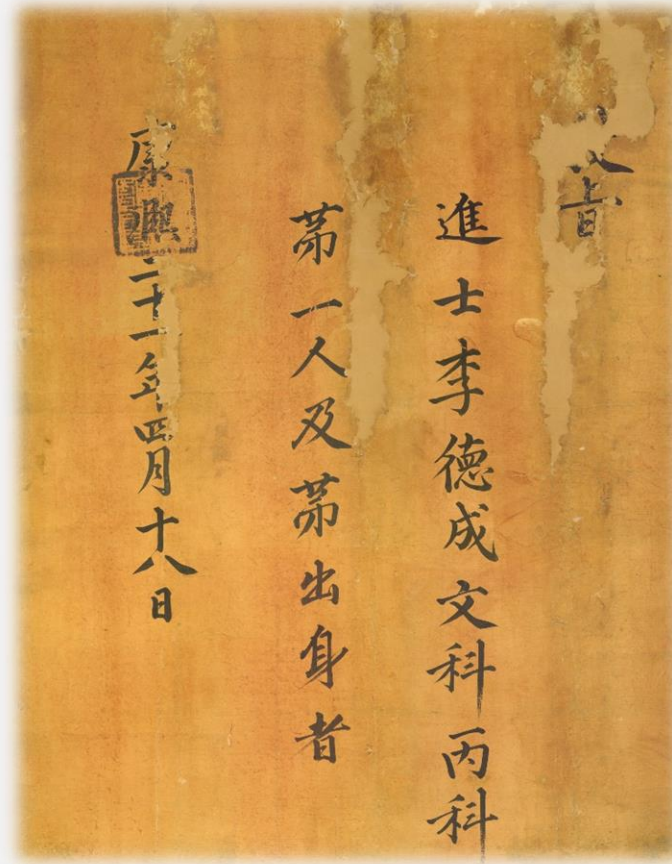 旨
進士李徳成文科丙科
苐一人及苐出身者
康熙二十一年四月十八日